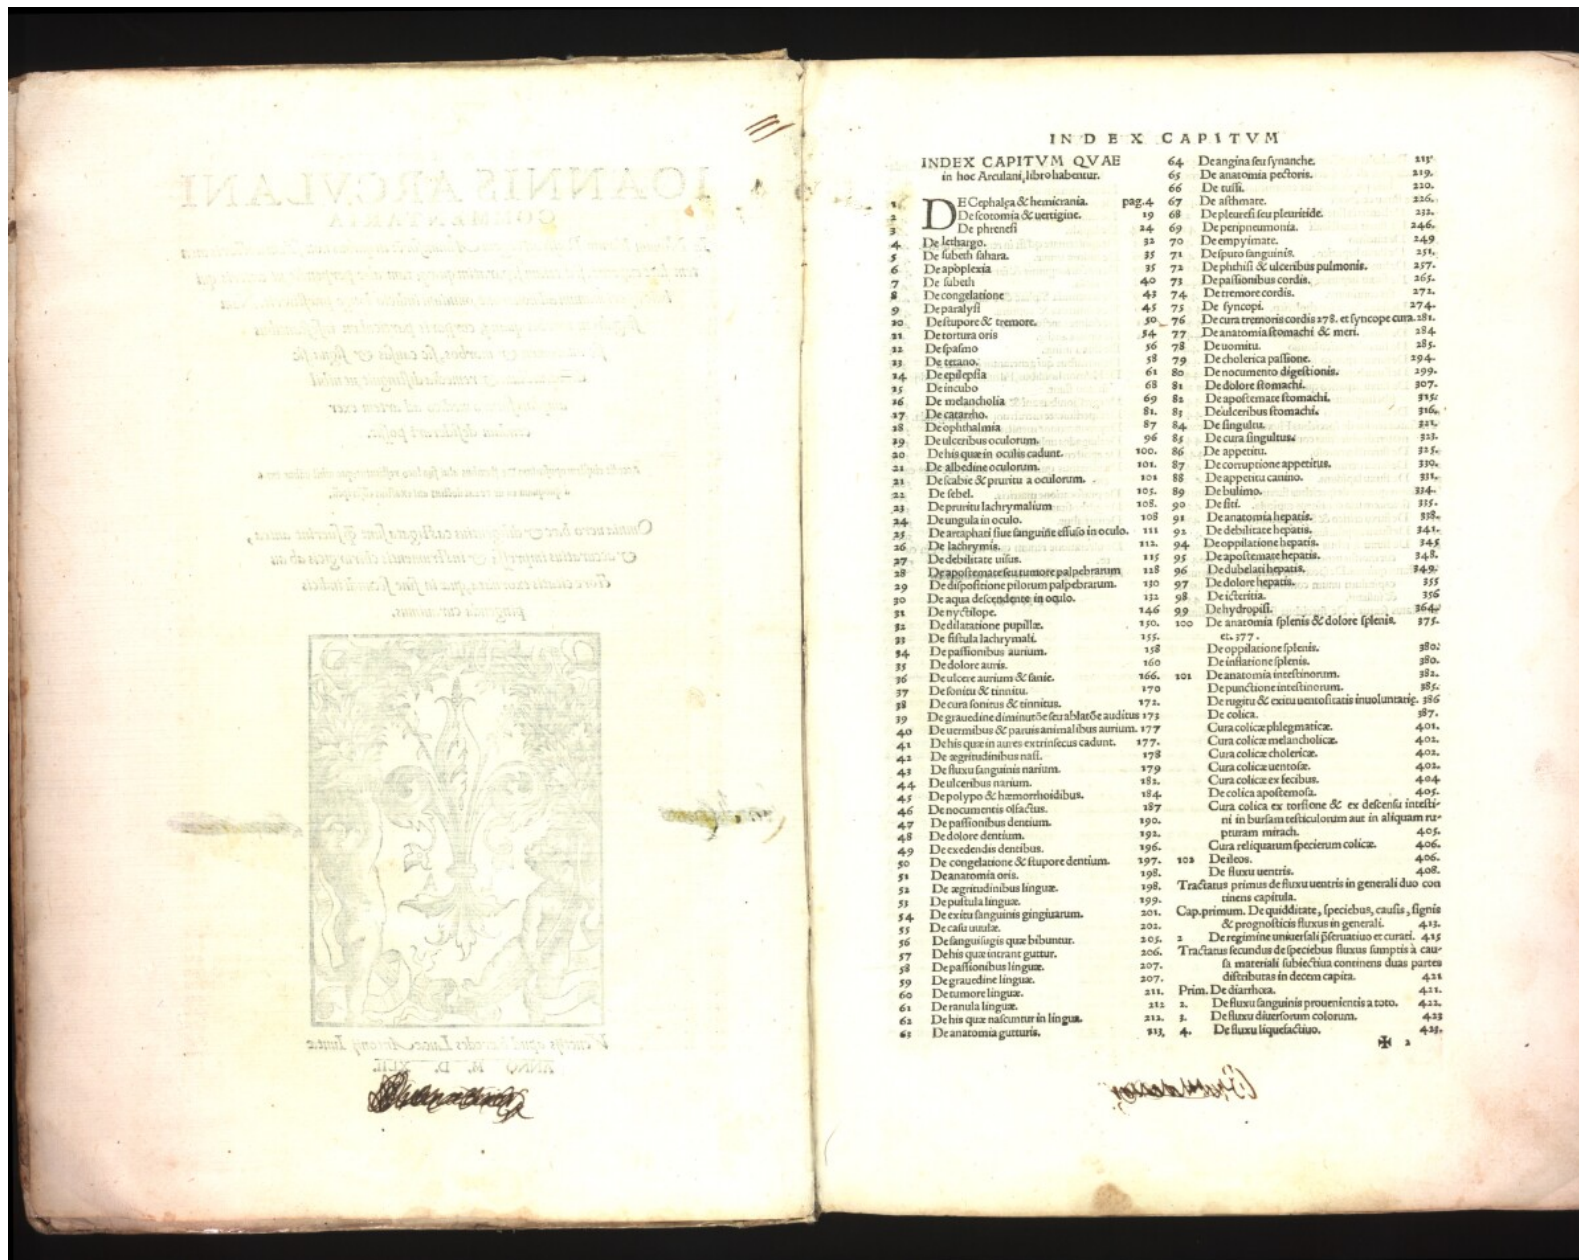 IOANNIS ARCVLANI
COMMENTARIA
ANNO M. D. XLII.
INDEX CAPITVM
INDEX CAPITVM QVAE
in hoc Arculani, libro habentur.
1 DE Cephalęa & hemicrania. pag. 4
2 De scotomia & uertigine. 19
3 De phrenesi 24
4 De lethargo. 32
5 De subeth sahara. 35
6 De apoplexia 35
7 De subeth 40
8 De congelatione 43
9 De paralysi 45
10 De stupore & tremore. 50
11 De tortura oris 54
12 De spasmo 56
13 De tetano. 58
14 De epilepsia 61
15 De incubo 68
16 De melancholia 69
17 De catarrho. 81.
18 De ophthalmia 87
19 De ulceribus oculorum. 96
20 De his quæ in oculis cadunt. 100.
21 De albedine oculorum. 101.
21 De scabie & pruritu a oculorum. 101
22 De sebel. 105.
23 De pruritu lachrymalium 108.
24 De ungula in oculo. 108
25 De artaphati siue sanguine effuso in oculo. 111
26 De lachrymis. 112.
27 De debilitate uisus. 115
28 De apostemate seu tumore palpebrarum 128
29 De dispositione pilorum palpebrarum. 130
30 De aqua descendente in oculo. 132
31 De nyctilope. 146
32 De dilatatione pupillæ. 150.
33 De fistula lachrymali. 155.
34 De passionibus aurium. 158
35 De dolore auris. 160
36 De ulcere aurium & sanie. 166.
37 De sonitu & tinnitu. 170
38 De cura sonitus & tinnitus. 172.
39 De grauedine diminutōe seu ablatōe auditus 173
40 De uermibus & paruis animalibus aurium. 177
41 De his quæ in aures extrinsecus cadunt. 177.
42 De ægritudinibus nasi. 178
43 De fluxu sanguinis narium. 179
44 De ulceribus narium. 182.
45 De polypo & hæmorrhoidibus. 184
46 De nocumentis olfactus. 187
47 De passionibus dentium. 190.
48 De dolore dentium. 192.
49 De exedendis dentibus. 196.
50 De congelatione & stupore dentium. 197.
51 De anatomia oris. 198.
52 De ægritudinibus linguæ. 198.
53 De pustula linguæ. 199.
54 De exitu sanguinis gingiuarum. 201.
55 De casu uuulæ. 202.
56 De sanguisugis quæ bibuntur. 205.
57 De his quæ intrant guttur. 206.
58 De passionibus linguæ. 207.
59 De grauedine linguæ. 207.
60 De tumore linguæ. 211.
61 De ranula linguæ. 212
62 De his quæ nascuntur in lingua. 212.
63 De anatomia gutturis. 213.
64 De angina seu synanche. 213.
65 De anatomia pectoris. 219.
66 De tussi. 220.
67 De asthmate. 226.
68 De pleuresi seu pleuritide. 232.
69 De peripneumonia. 246.
70 De empyimate. 249
71 De sputo sanguinis. 251.
72 De phthisi & ulceribus pulmonis. 257.
73 De passionibus cordis. 265.
74 De tremore cordis. 272.
75 De syncopi. 274.
76 De cura tremoris cordis 278. et syncope cura. 281.
77 De anatomia stomachi & meri. 284
78 De uomitu. 285.
79 De cholerica passione. 294.
80 De nocumento digestionis. 299.
81 De dolore stomachi. 307.
82 De apostemate stomachi. 315.
83 De ulceribus stomachi. 316.
84 De singultu. 321.
85 De cura singultus. 323.
86 De appetitu. 325.
87 De corruptione appetitus. 330.
88 De appetitu canino. 331.
89 De bulimo. 334.
90 De siti. 335.
91 De anatomia hepatis. 338.
92 De debilitate hepatis. 341.
94 De oppilatione hepatis. 345
95 De apostemate hepatis. 348.
96 De dubelati hepatis. 349.
97 De dolore hepatis. 355
98 De icteritia. 356
99 De hydropisi. 364.
100 De anatomia splenis & dolore splenis. 375.
et. 377.
De oppilatione splenis. 380.
De inflatione splenis. 380.
101 De anatomia intestinorum. 382.
De punctione intestinorum. 385.
De rugitu & exitu uentositatis inuoluntarię. 386
De colica. 387.
Cura colicæ phlegmaticæ. 401.
Cura colicæ melancholicæ. 402.
Cura colicæ cholericæ. 402.
Cura colicæ uentosæ. 402.
Cura colicæ ex fecibus. 404
De colica apostemosa. 405.
Cura colica ex torsione & ex descensu intesti-
ni in bursam testiculorum aut in aliquam ru-
pturam mirach. 405.
Cura reliquarum specierum colicæ. 406.
102 De ileos. 406.
De fluxu uentris. 408.
Tractatus primus de fluxu uentris in generali duo con
tinens capitula.
Cap. primum. De quidditate, speciebus, causis, signis
& prognosticis fluxus in generali. 413.
2 De regimine uniuersali p̄seruatiuo et curati. 415
Tractatus secundus de speciebus fluxus sumptis à cau-
sa materiali subiectiua continens duas partes
distributas in decem capita. 421
Prim. De diarrhœa. 421.
2. De fluxu sanguinis prouenientis a toto. 422.
3. De fluxu diuersorum colorum. 423
4. De fluxu liquefactiuo. 423.
✠ 2